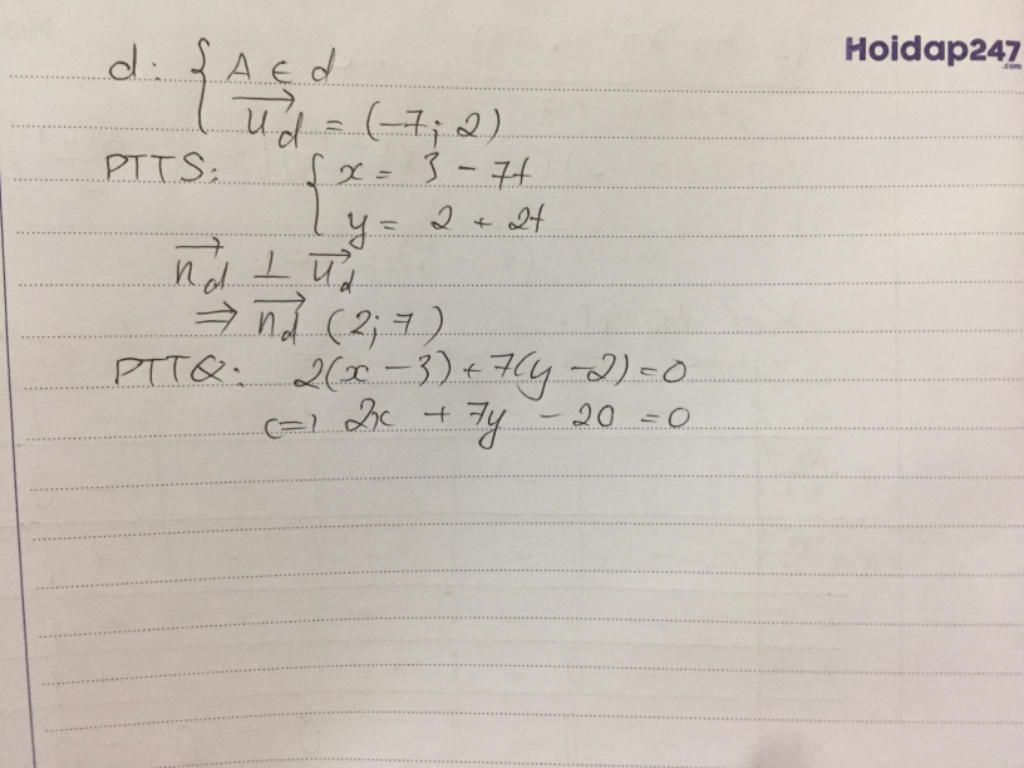 Hoidap247
.com
d: { A ∈ d
u_d = (-7; 2)
PTTS: { x = 3 - 7t
y = 2 + 2t
n_d ⊥ u_d
⇒ n_d (2; 7)
PTTQ: 2(x - 3) + 7(y - 2) = 0
<=> 2x + 7y - 20 = 0